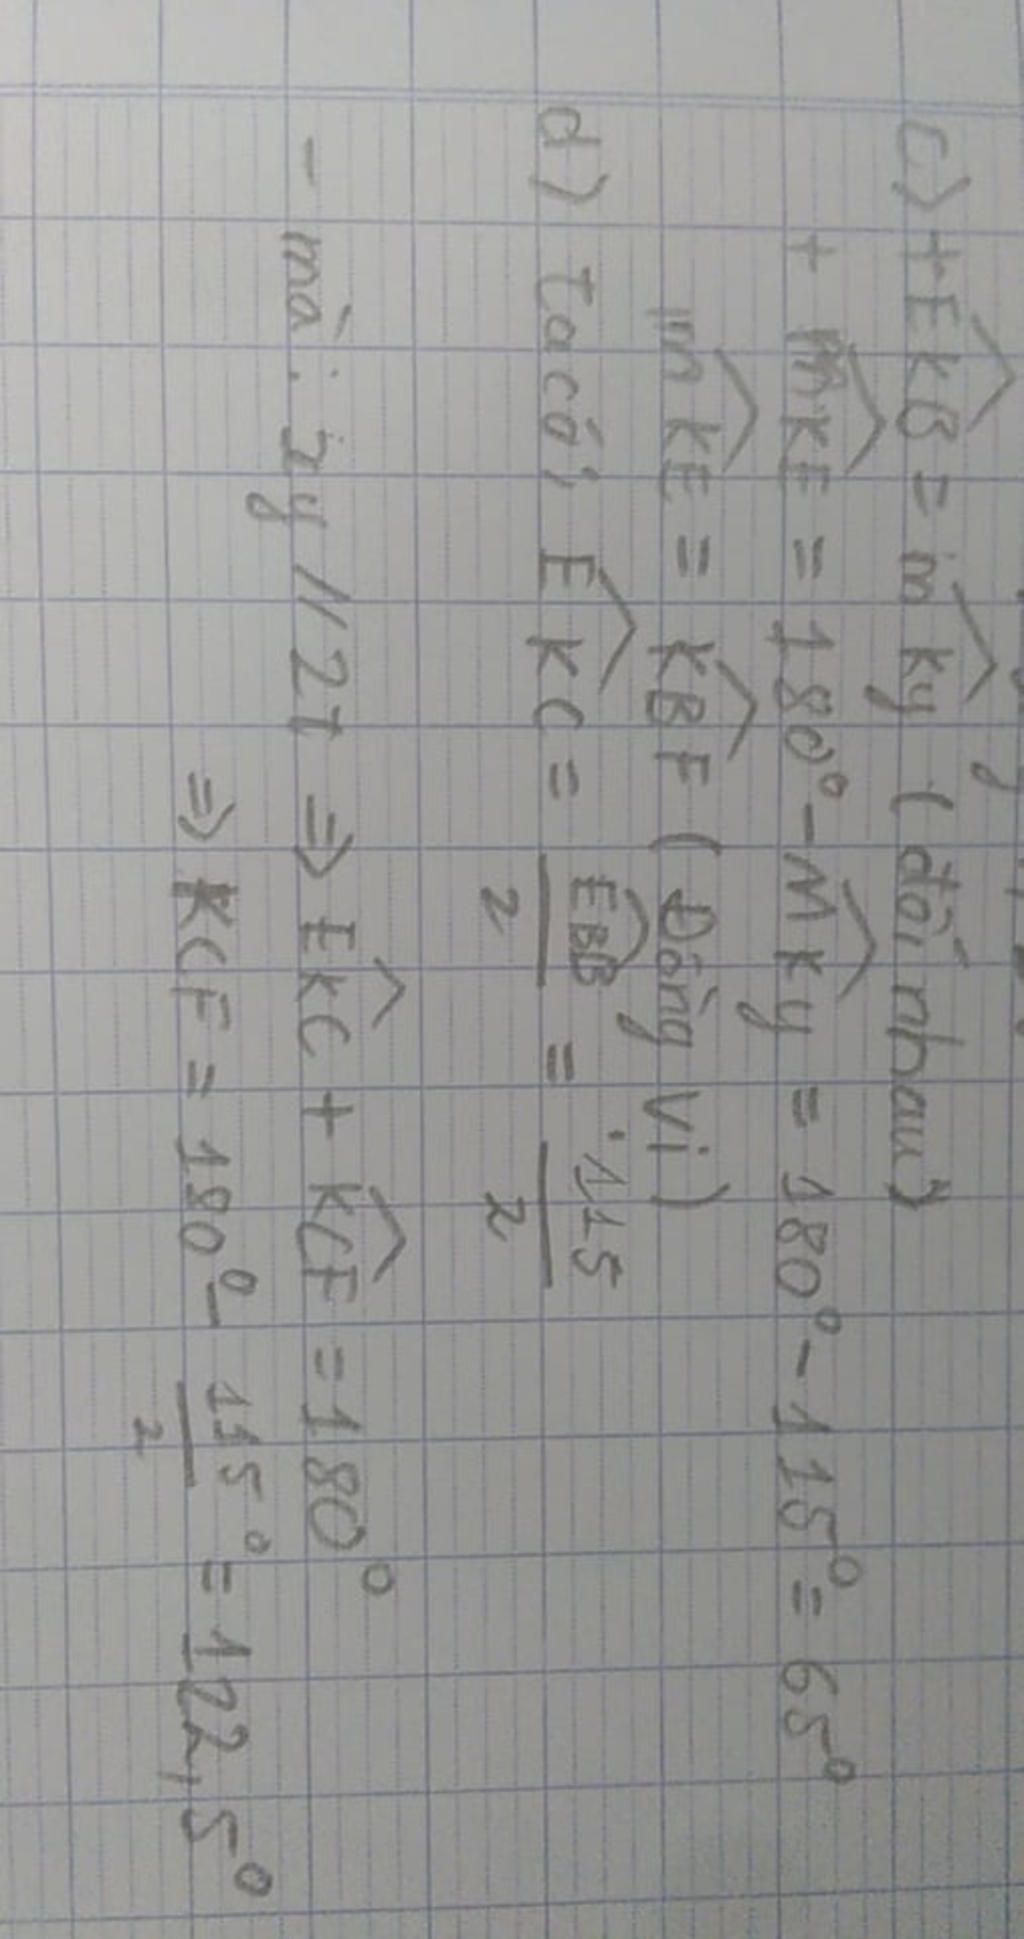 c) + EkB = mky (đối nhau)
+ mkE = 180° - Mky = 180° - 115° = 65°
mkE = KBF (Đồng Vi)
d) ta có: EKC = EBB/2 = 115/2
- mà: xy // zt ⇒ EKC + KCF = 180°
⇒ KCF = 180° - 115°/2 = 122,5°